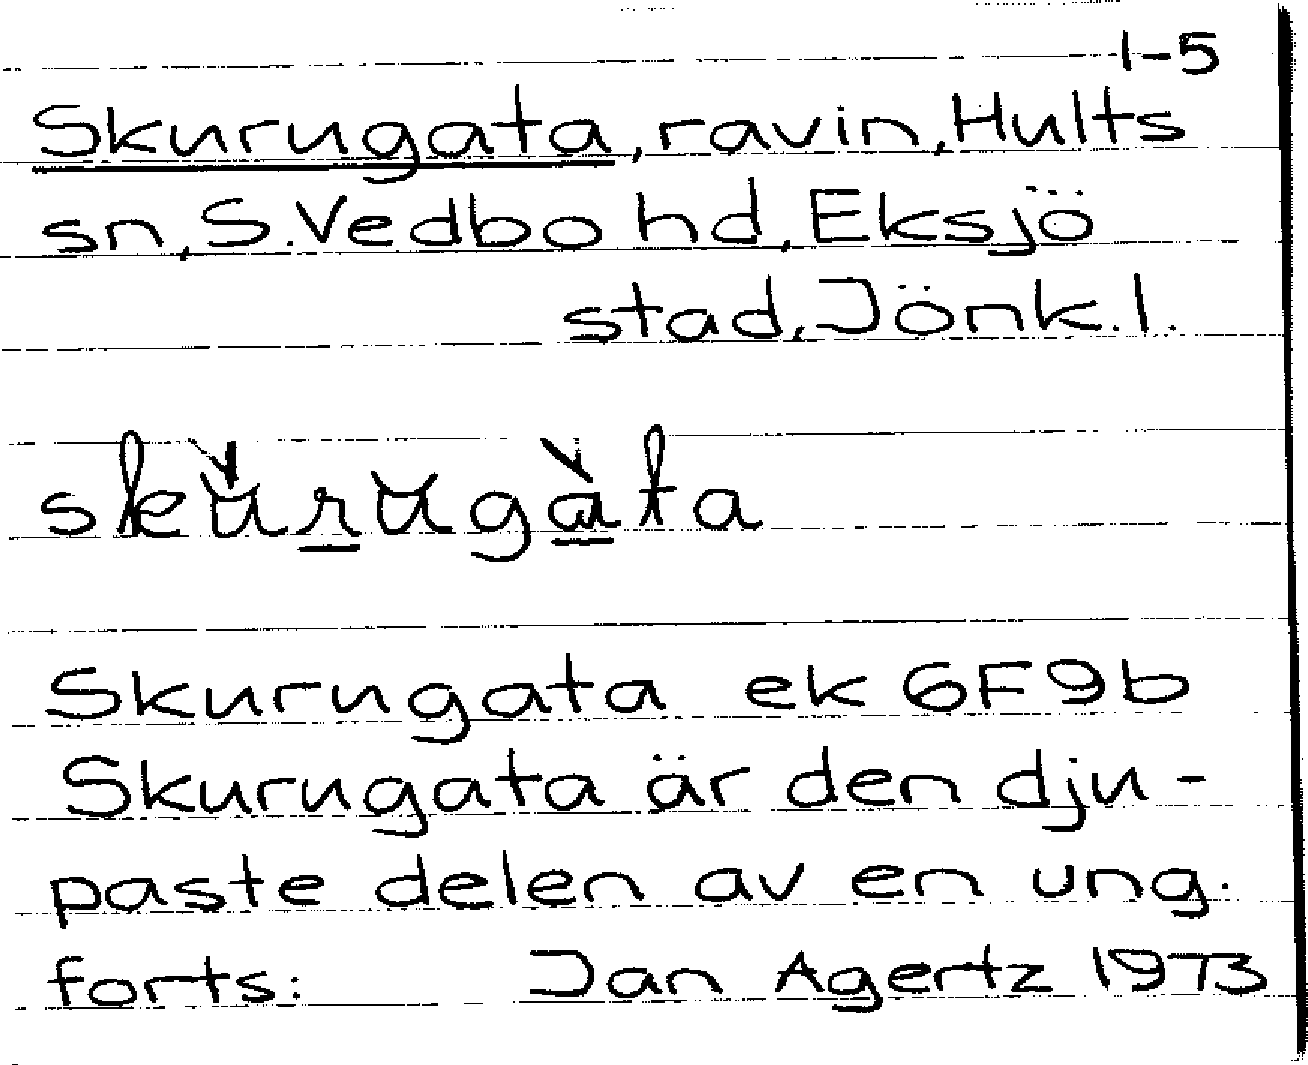 1-5
Skurugata, ravin, Hults
sn, S. Vedbo hd, Eksjö
stad, Jönk. l.
skùrugàta
Skurugata ek 6F9b
Skurugata är den dju-
paste delen av en ung.
forts: Jan Agertz 1973